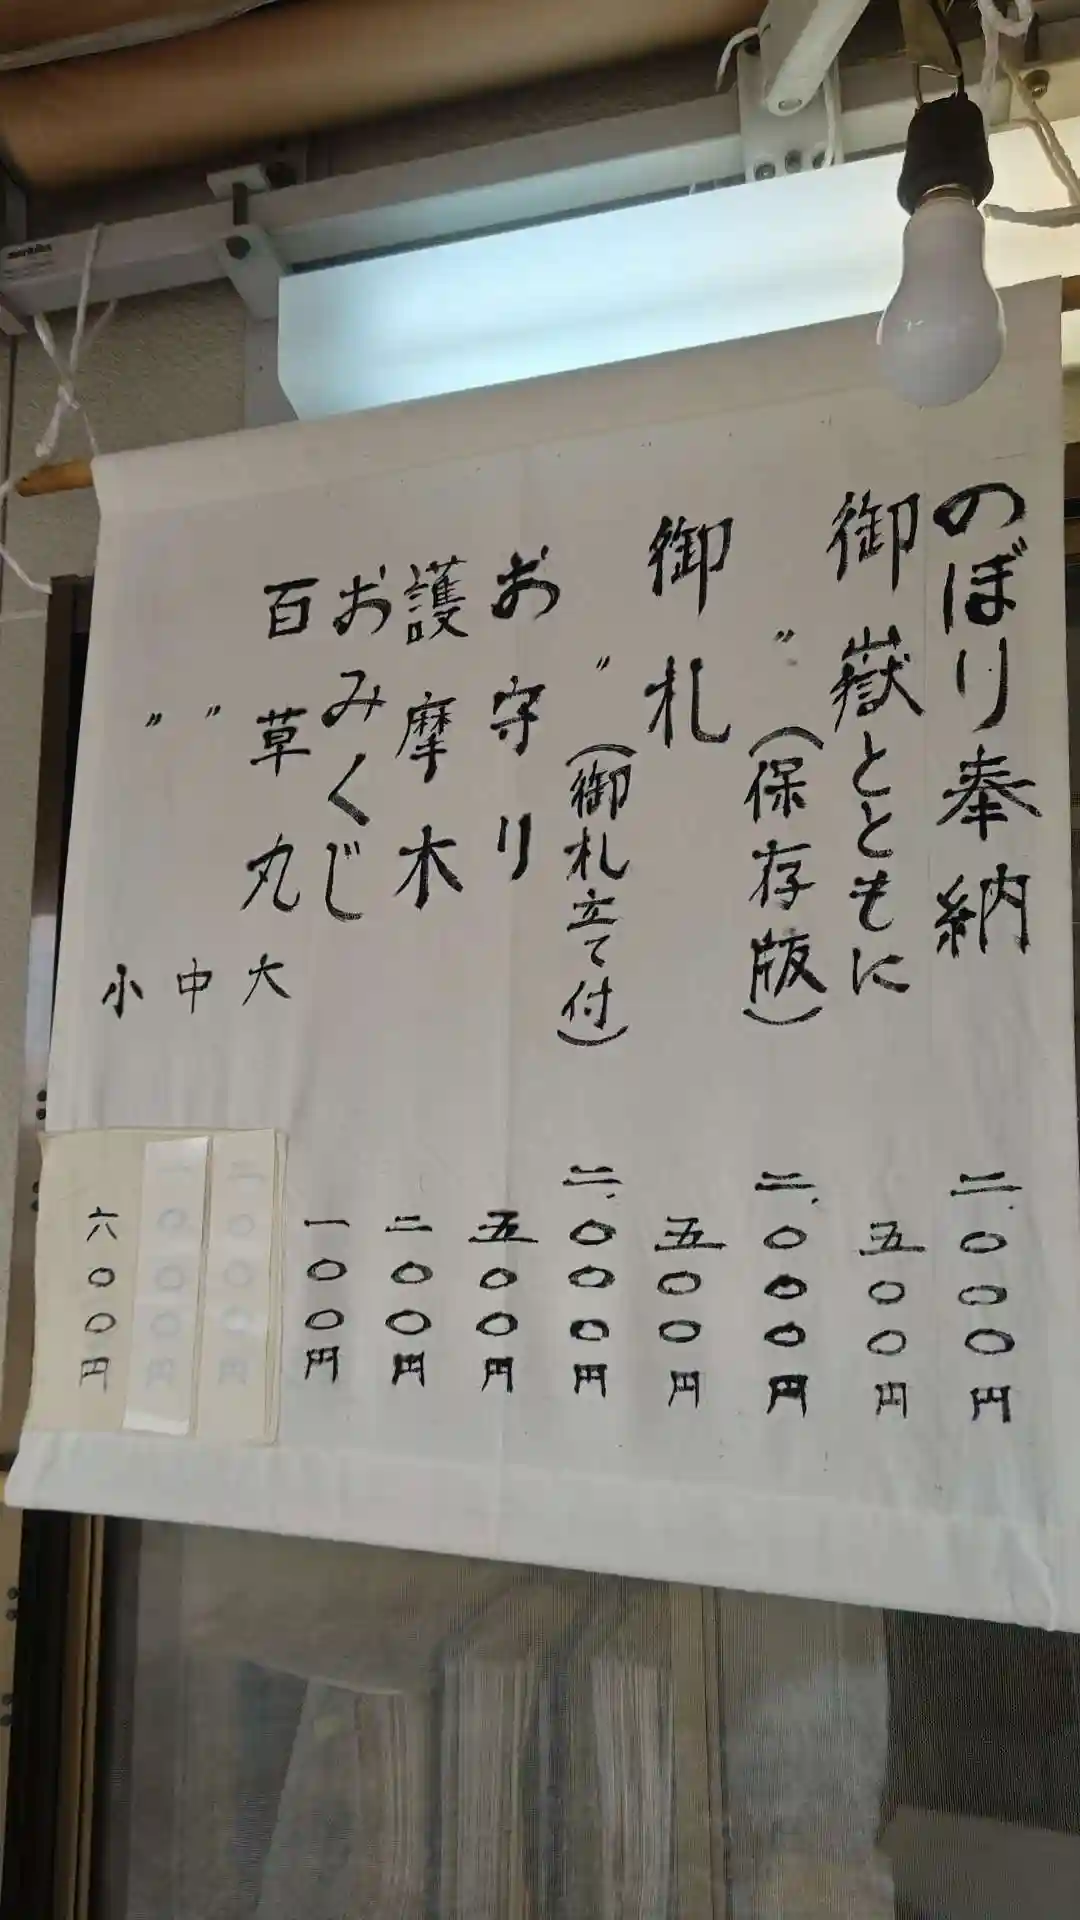 のぼり奉納 二、〇〇〇円
御嶽とともに 五〇〇円
〃(保存版) 二、〇〇〇円
御札 五〇〇円
〃(御札立て付) 二、〇〇〇円
お守り 五〇〇円
護摩木 二〇〇円
おみくじ 一〇〇円
百草丸 大
〃 中
〃 小 六〇〇円